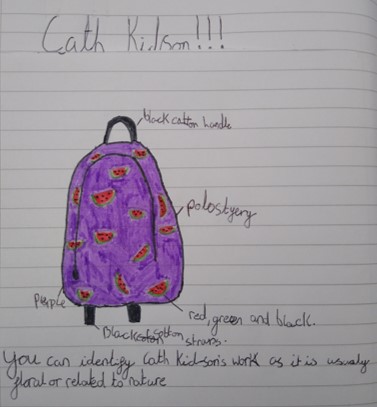 Cath Kidson!!!
black cotton handle
polostyery
purple
red, green and black.
Black cotton
straps.
You can identify Cath kidson's work as it is usualy
floral or related to nature